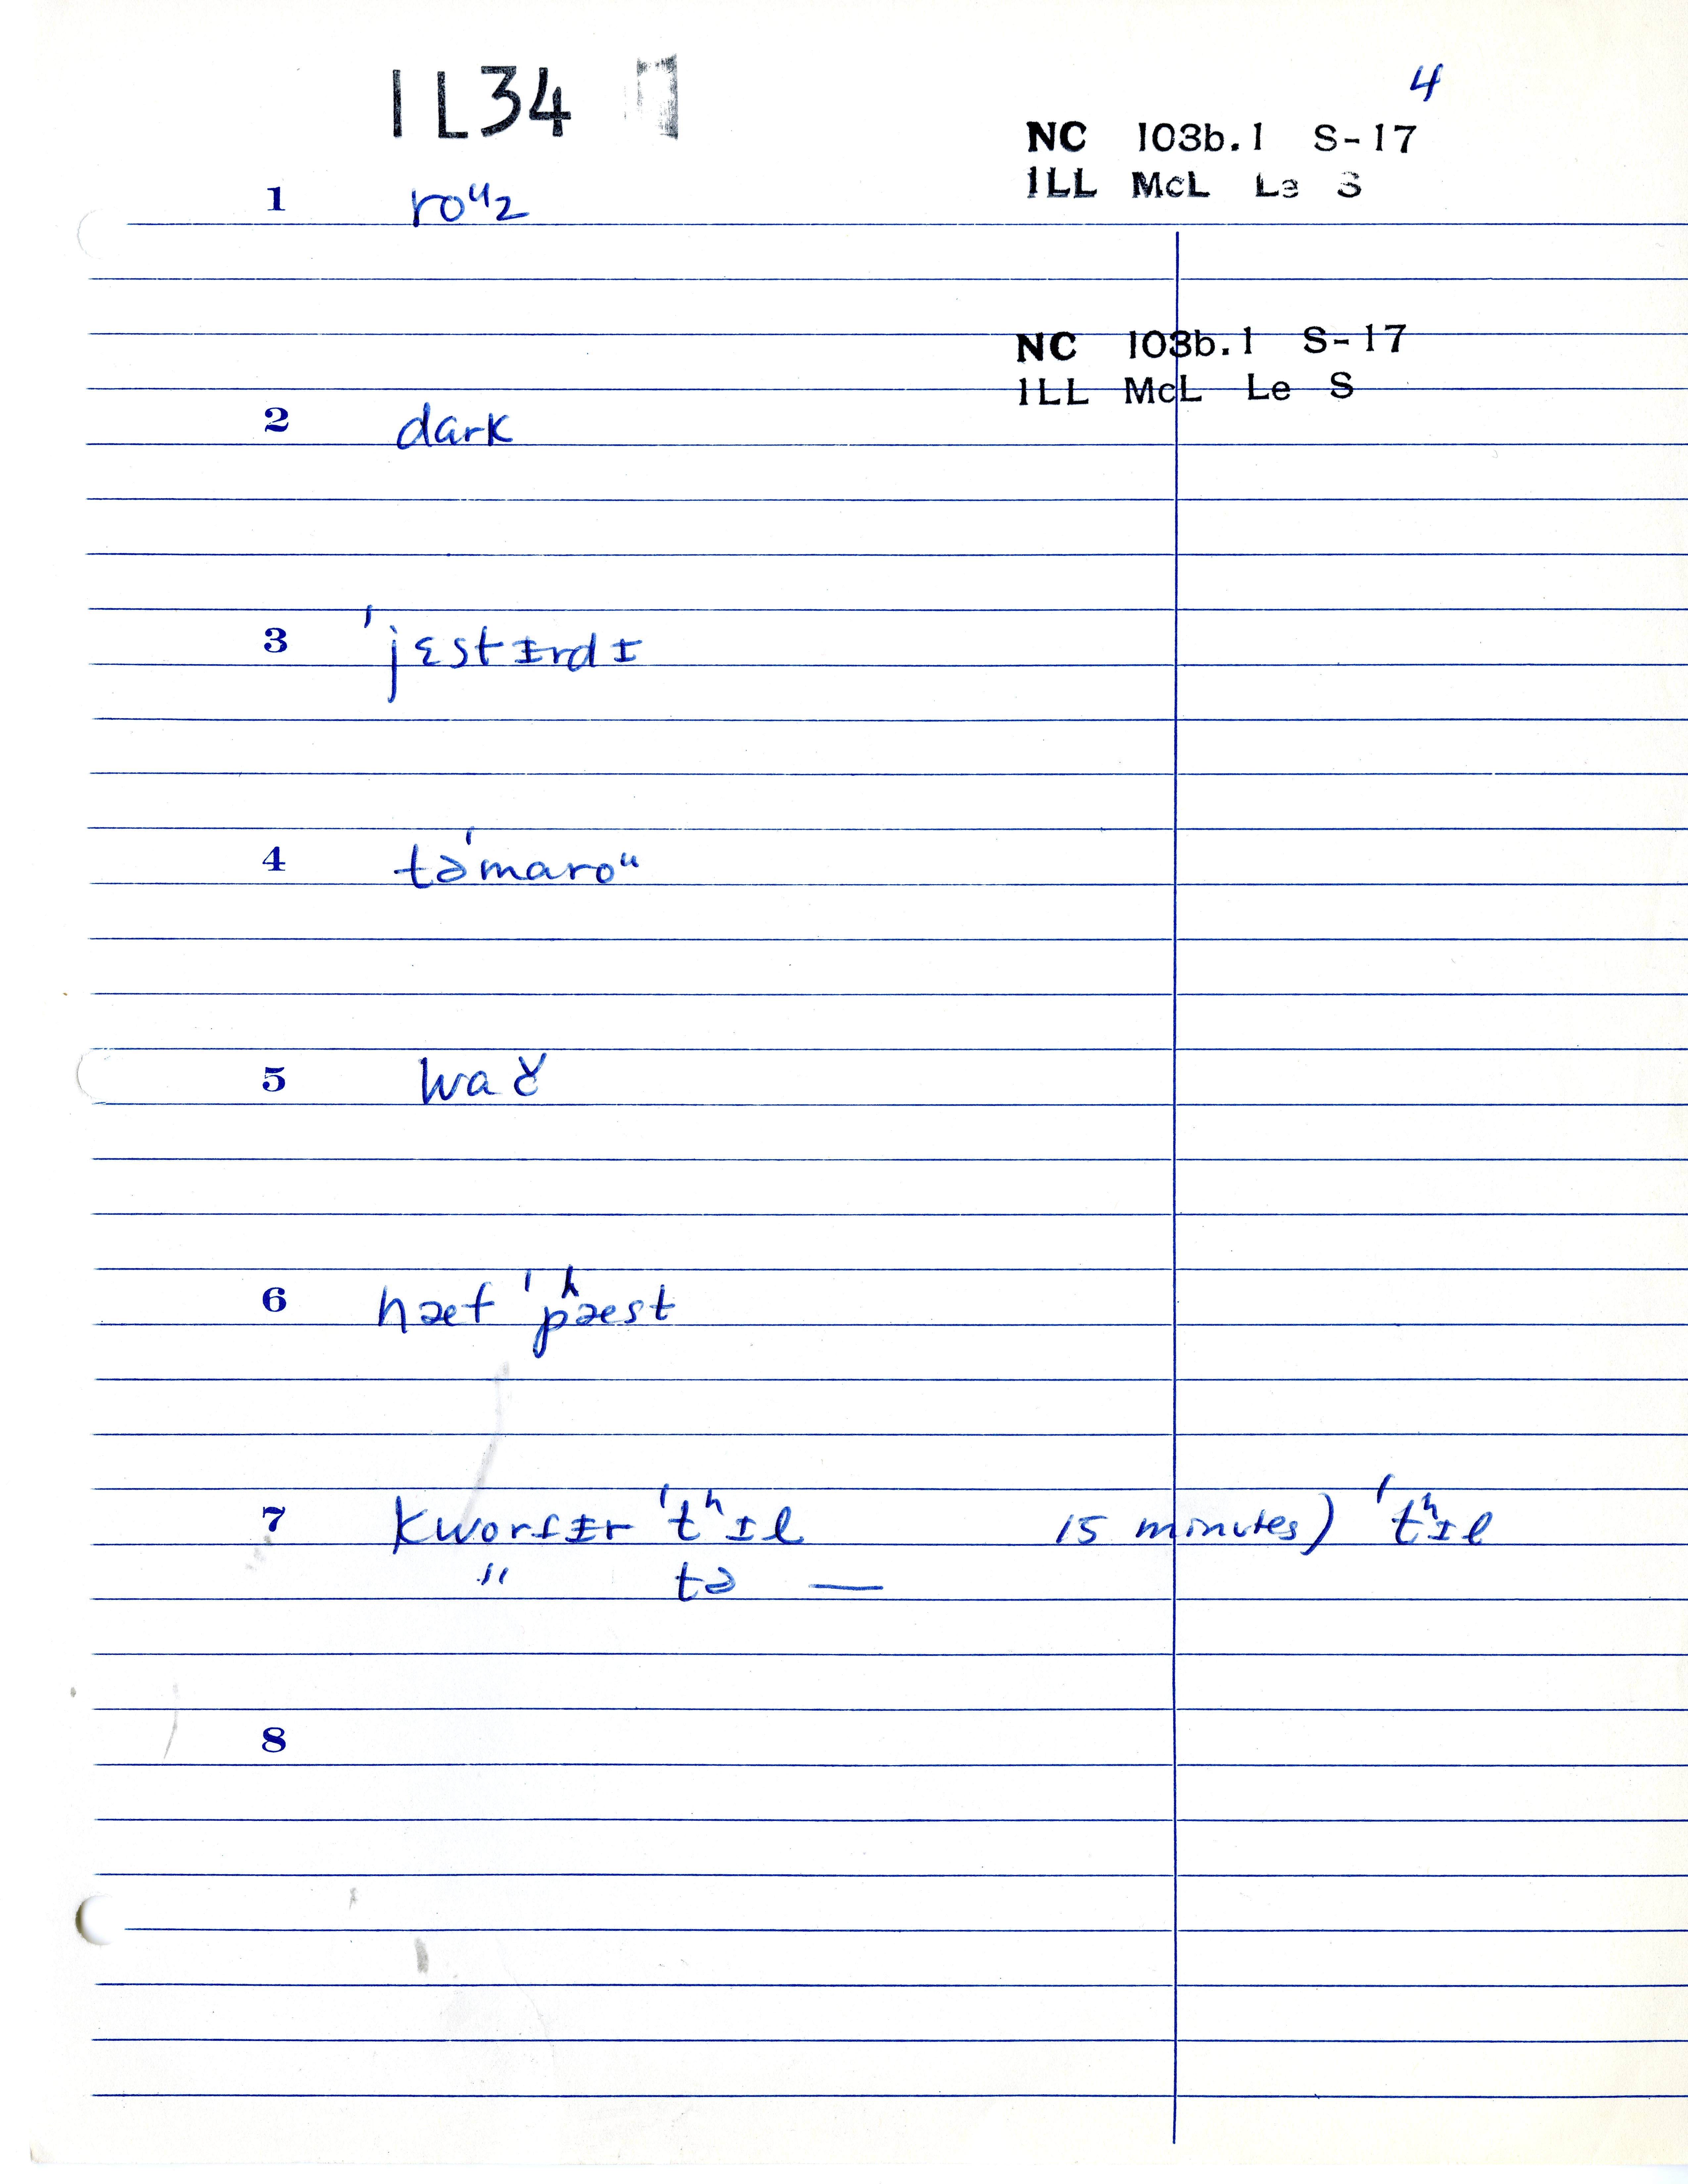 IL34
4
NC 103b.1 S-17
ILL McL Le S
1 roᵘz
NC 103b.1 S-17
ILL McL Le S
2 dark
3 ˈjɛstɪrdɪ
4 təˈmaroᵘ
5 waɤ
6 hæf ˈpʰæst
7 kworſɪr ˈtʰɪl 15 minutes) ˈtʰɪl
" tə —
8